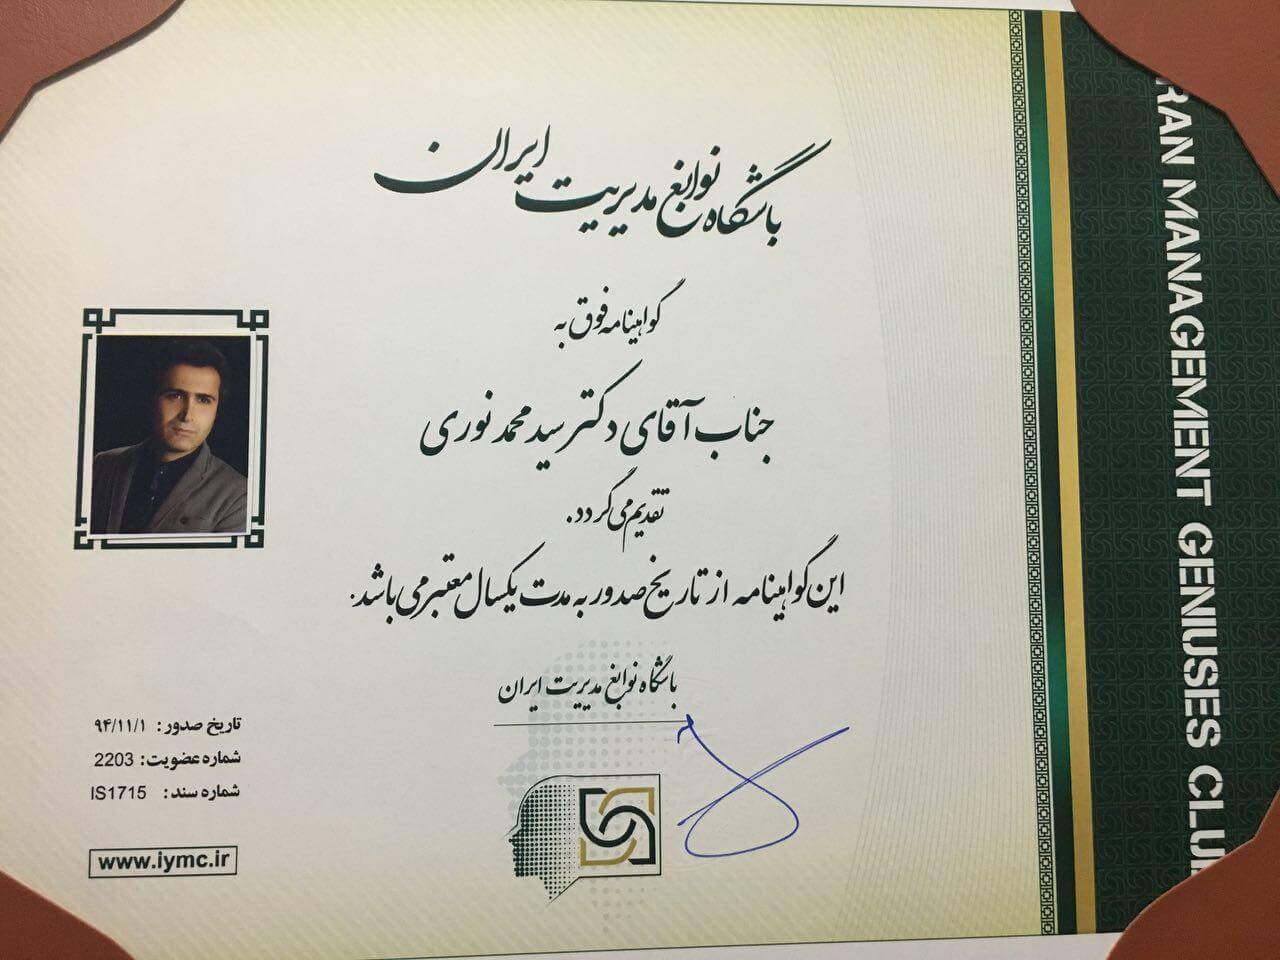 باشگاه نوابغ مدیریت ایران
گواهینامه فوق به
جناب آقای دکتر سید محمد نوری
تقدیم می گردد.
این گواهینامه از تاریخ صدور به مدت یکسال معتبر می باشد.
باشگاه نوابغ مدیریت ایران
تاریخ صدور: ۹۴/۱۱/۱
شماره عضویت: 2203
شماره سند: IS1715
www.iymc.ir
RAN MANAGEMENT GENIUSES CLUB